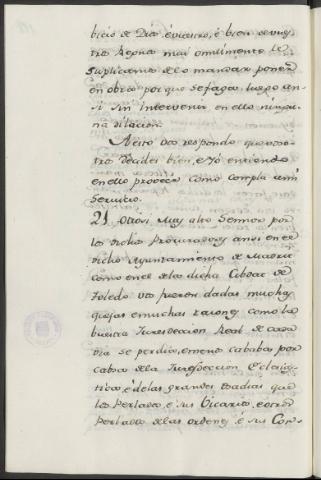 bicio de Dios é vuestro, é bien de vuestros
tros Regnos mui omilmente le
suplicamos de lo mandar poner
en obra por que se faga luego an
si sin intervenir en ello ningu
na dilacion.
A esto vos respondo que voso
tros decides bien, e Yo entiendo
en ello proveer como cumpla a mi
servicio.
21 Otrosi Muy alto Sennor por
los dichos Procuradores ansi en el
dicho Ayuntamiento de Madrid
como en el de la dicha Cibdat de
Toledo vos fueron dadas muchas
quejas e muchas raiones como la
vuestra Juresdeccion Real de cada
dia se perdia, e menoscababa por
cabsa de la Juresdeccion Eclesias
tica, é de las grandes osadias que
los Perlados, é sus Vicarios, e otros
Perlados de las ordenes, é sus Con-